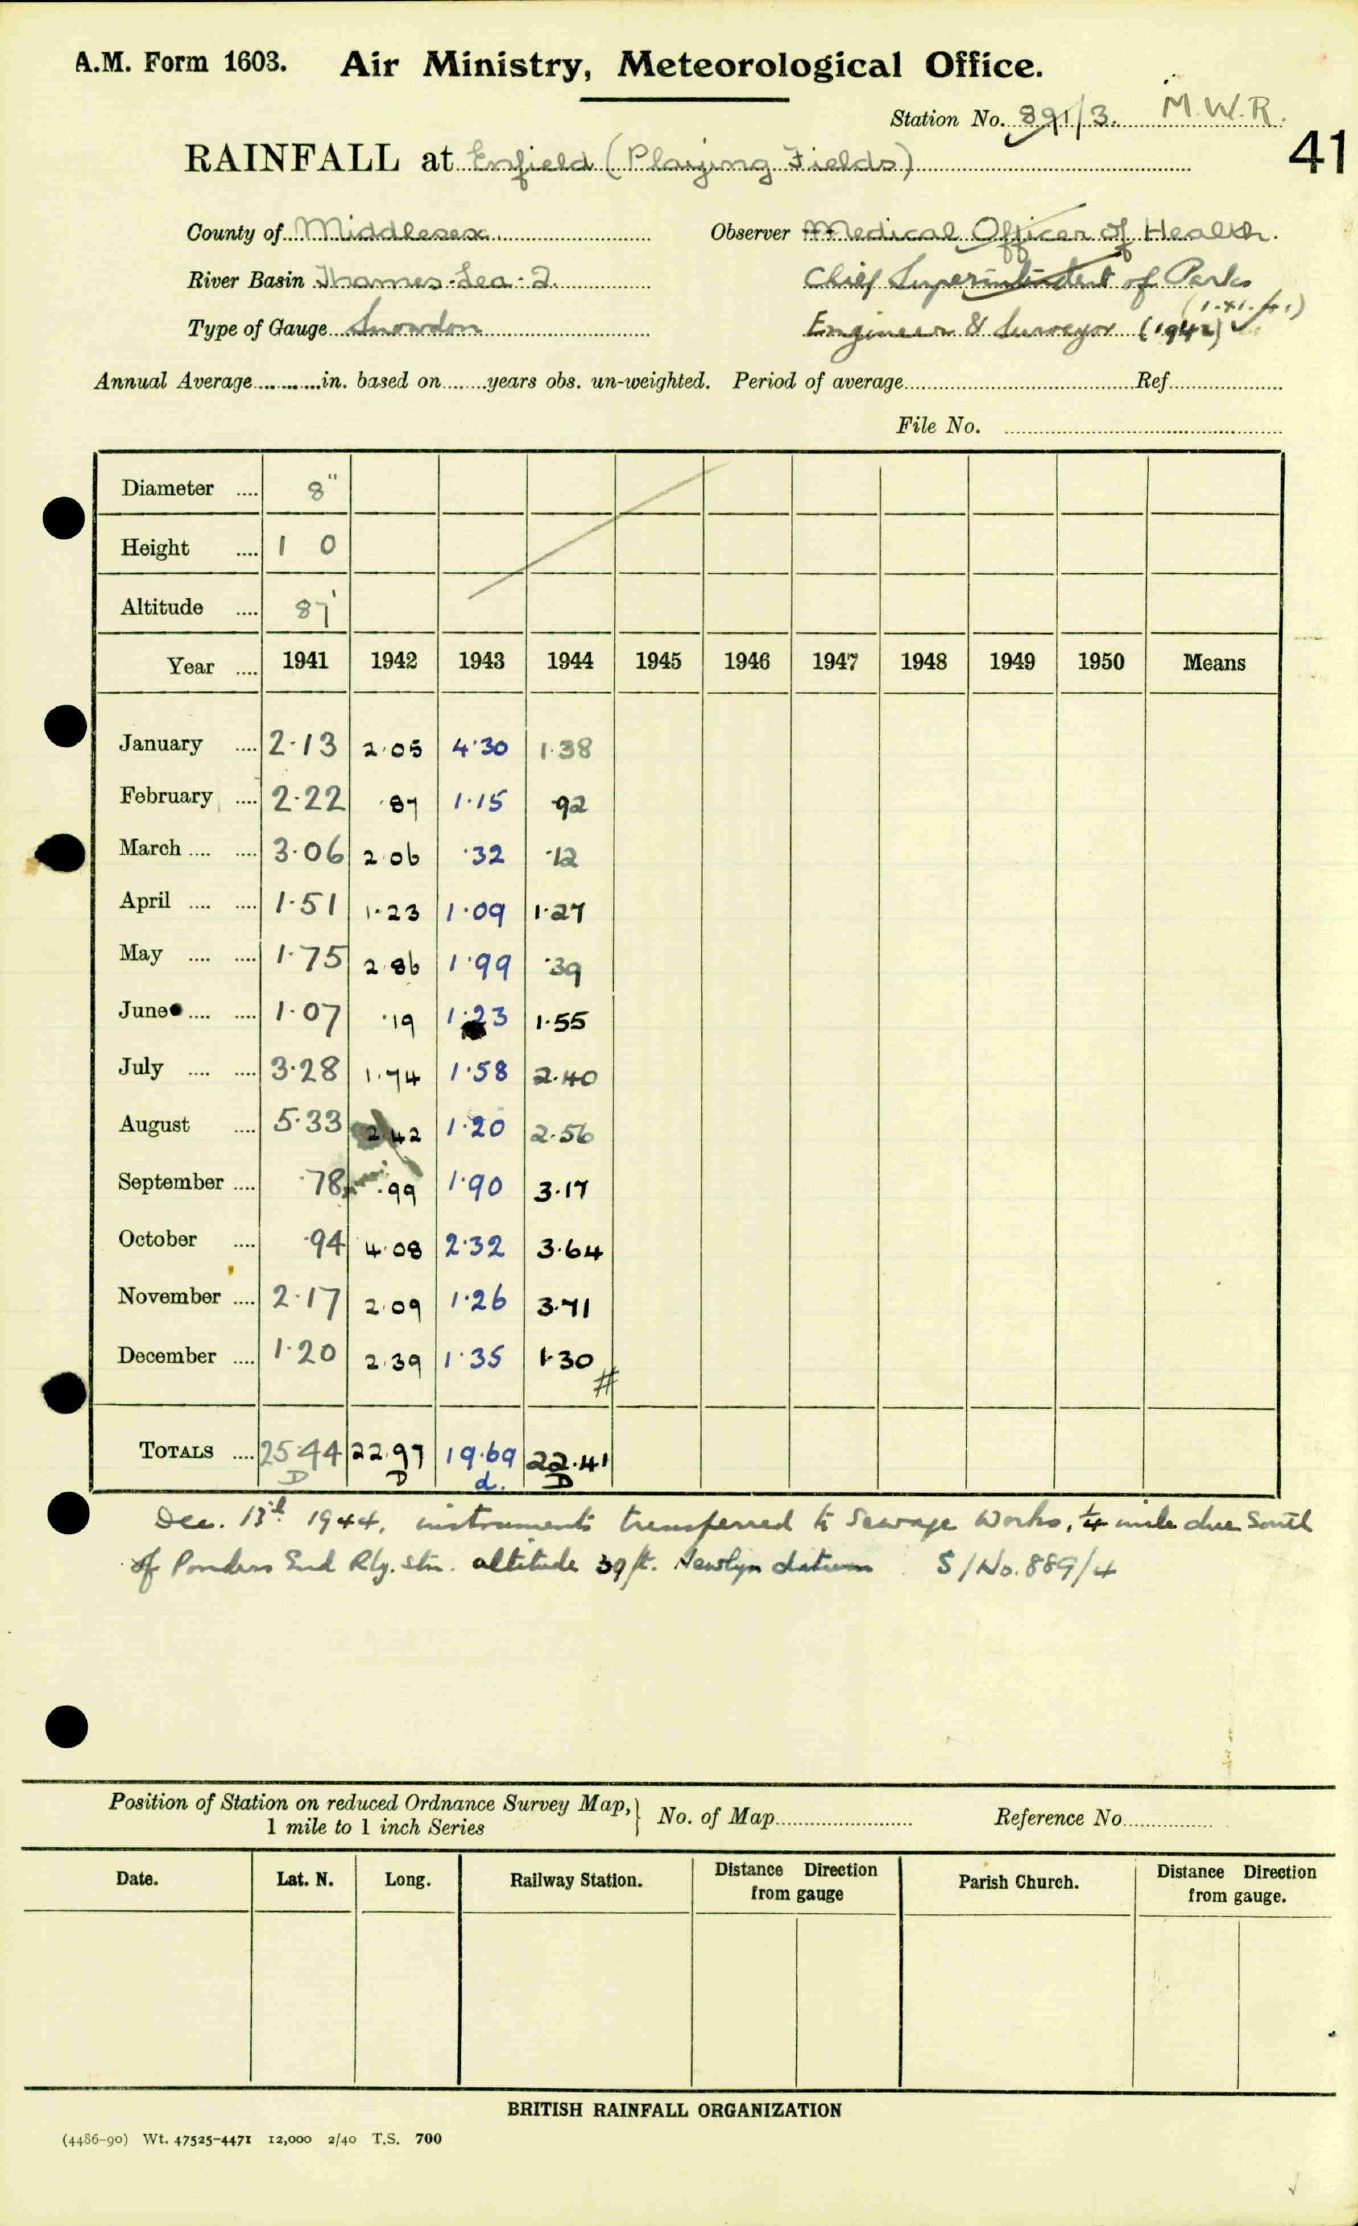 A.M. Form 1603. Air Ministry, Meteorological Office.
Station No. 891/3. M.W.R.
41
RAINFALL at Enfield (Playing Fields)
County of Middlesex Observer Medical Officer of Health.
River Basin Thames-Lea-2 Chief Superintendent of Parks
(1.XI.41)
Type of Gauge Snowdon Engineer & Surveyor (1942)
Annual Average in. based on years obs. un-weighted. Period of average Ref
File No.
Diameter 8"
Height 1 0
Altitude 87'
Year 1941 1942 1943 1944 1945 1946 1947 1948 1949 1950 Means
January 2.13 2.05 4.30 1.38
February 2.22 .87 1.15 .92
March 3.06 2.06 .32 .12
April 1.51 1.23 1.09 1.27
May 1.75 2.86 1.99 .39
June 1.07 .19 1.23 1.55
July 3.28 1.74 1.58 2.40
August 5.33 2.42 1.20 2.56
September .78 .99 1.90 3.17
October .94 4.08 2.32 3.64
November 2.17 2.09 1.26 3.71
December 1.20 2.39 1.35 1.30
#
TOTALS 25.44 22.97 19.69 22.41
D D d. D
Dec. 13th 1944, instruments transferred to Sewage Works, 1/4 mile due South
of Ponders End Rly. stn. altitude 39 ft. Newlyn datum S/No. 889/4
Position of Station on reduced Ordnance Survey Map, } No. of Map Reference No
1 mile to 1 inch Series
Date. Lat. N. Long. Railway Station. Distance Direction from gauge Parish Church. Distance Direction from gauge.
BRITISH RAINFALL ORGANIZATION
(4486-90) Wt. 47525-4471 12,000 2/40 T.S. 700